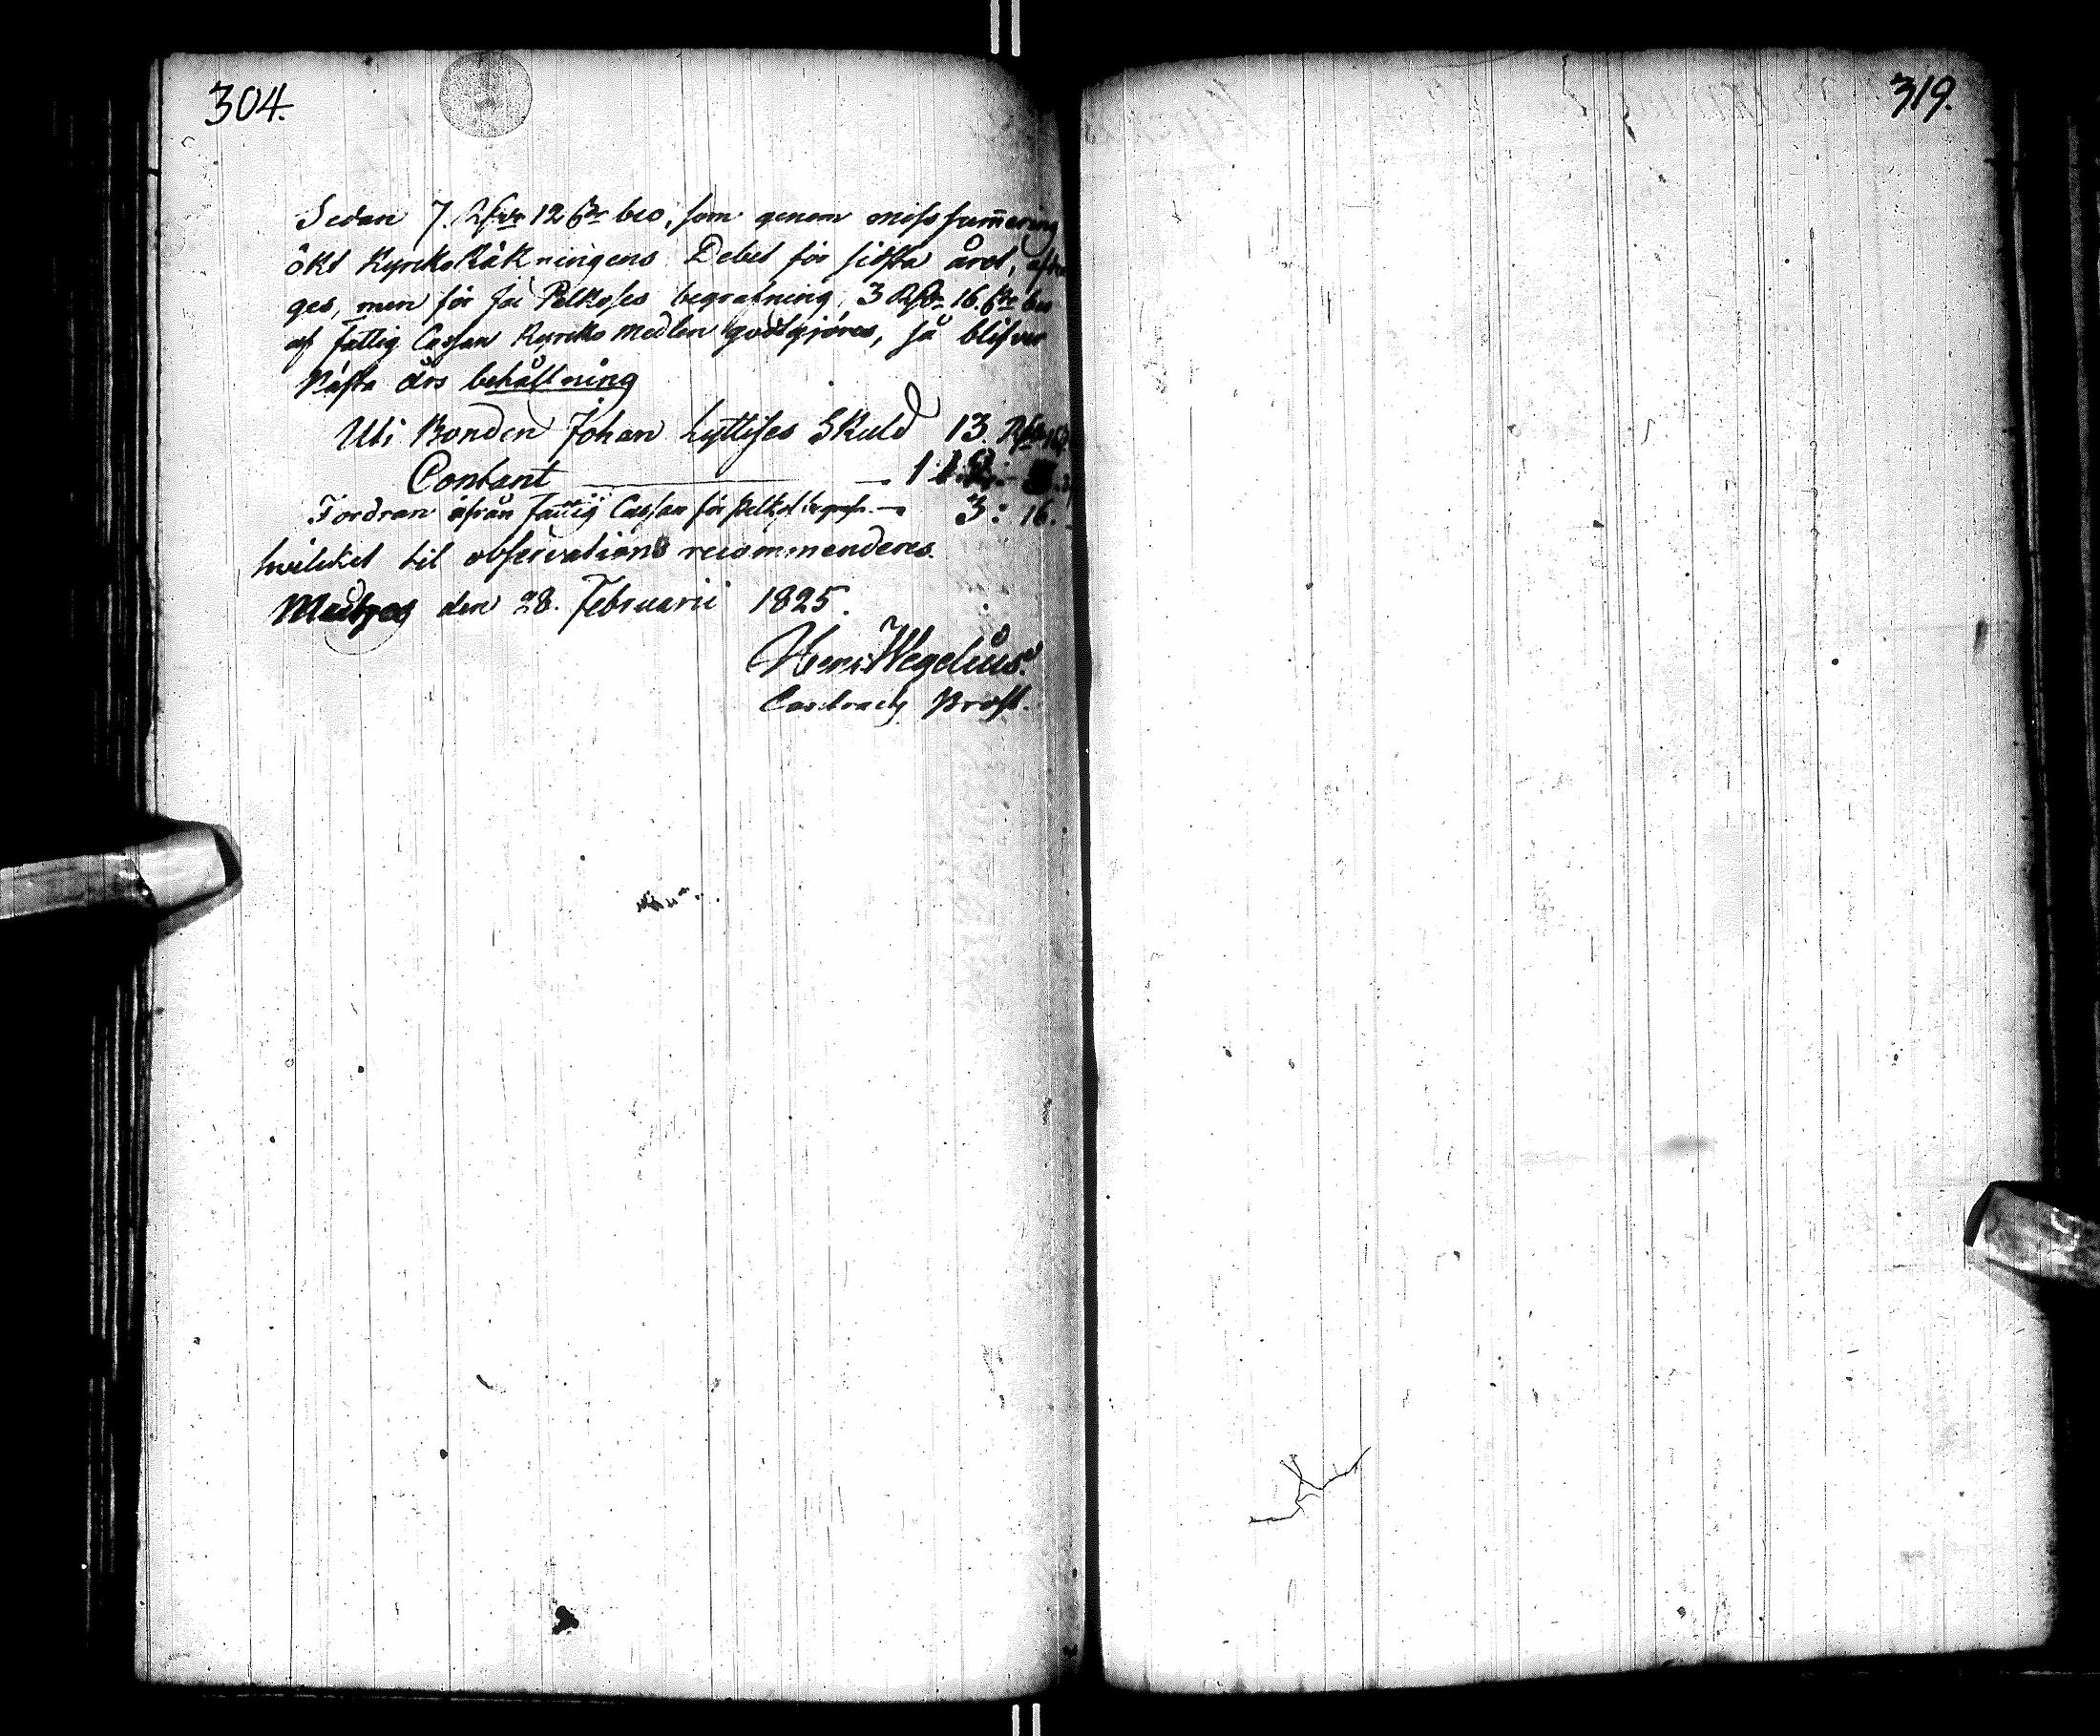 304.
Sedan 7. Rdr 12 sk bco, som genom misssum̅ering
ökt KyrckoRäkningens Debet för sidsta året,
ges, men för Joi Pelkoses begrafning 3 Rdr 16. sk bco
af fattig Cassan Kyrcko medlen godtgjöres, så blifver
Nästa års behållning
Uti Bonden Johan Lyttises Skuld 13. Rdr
Contant
Fordran ifrån fattig Cassan för Pelkos begrafn. 3: 16.
hvilcket til observations recommenderes.
den 28. Februarii 1825.
Henr. Wegelius.
Contracts Prost.
319.